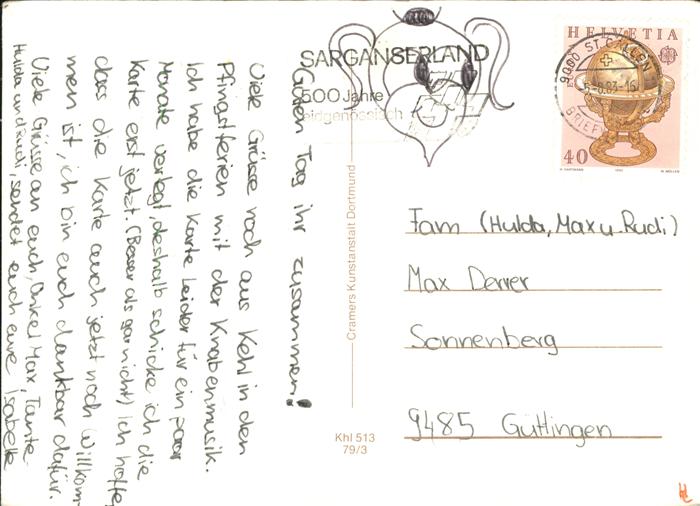 Guten Tag ihr zusammen!
Viele Grüsse noch aus Kehl in den
Pfingstferien mit der Knabenmusik.
Ich habe die Karte leider für ein paar
Monate verlegt, deshalb schicke ich die
Karte erst jetzt. (Besser als gar nicht) Ich hoffe,
dass die Karte auch jetzt noch willkom-
men ist, ich bin euch dankbar dafür.
Viele Grüsse an euch, Onkel Max, Tante
Hulda und Rudi, sendet euch eure Isabelle
SARGANSERLAND
500 Jahre
eidgenössisch
Cramers Kunstanstalt Dortmund
Khl 513
79/3
HELVETIA
9000 ST. GALLEN
40
Fam (Hulda, Max u. Rudi)
Max Derrer
Sonnenberg
9485 Güttingen